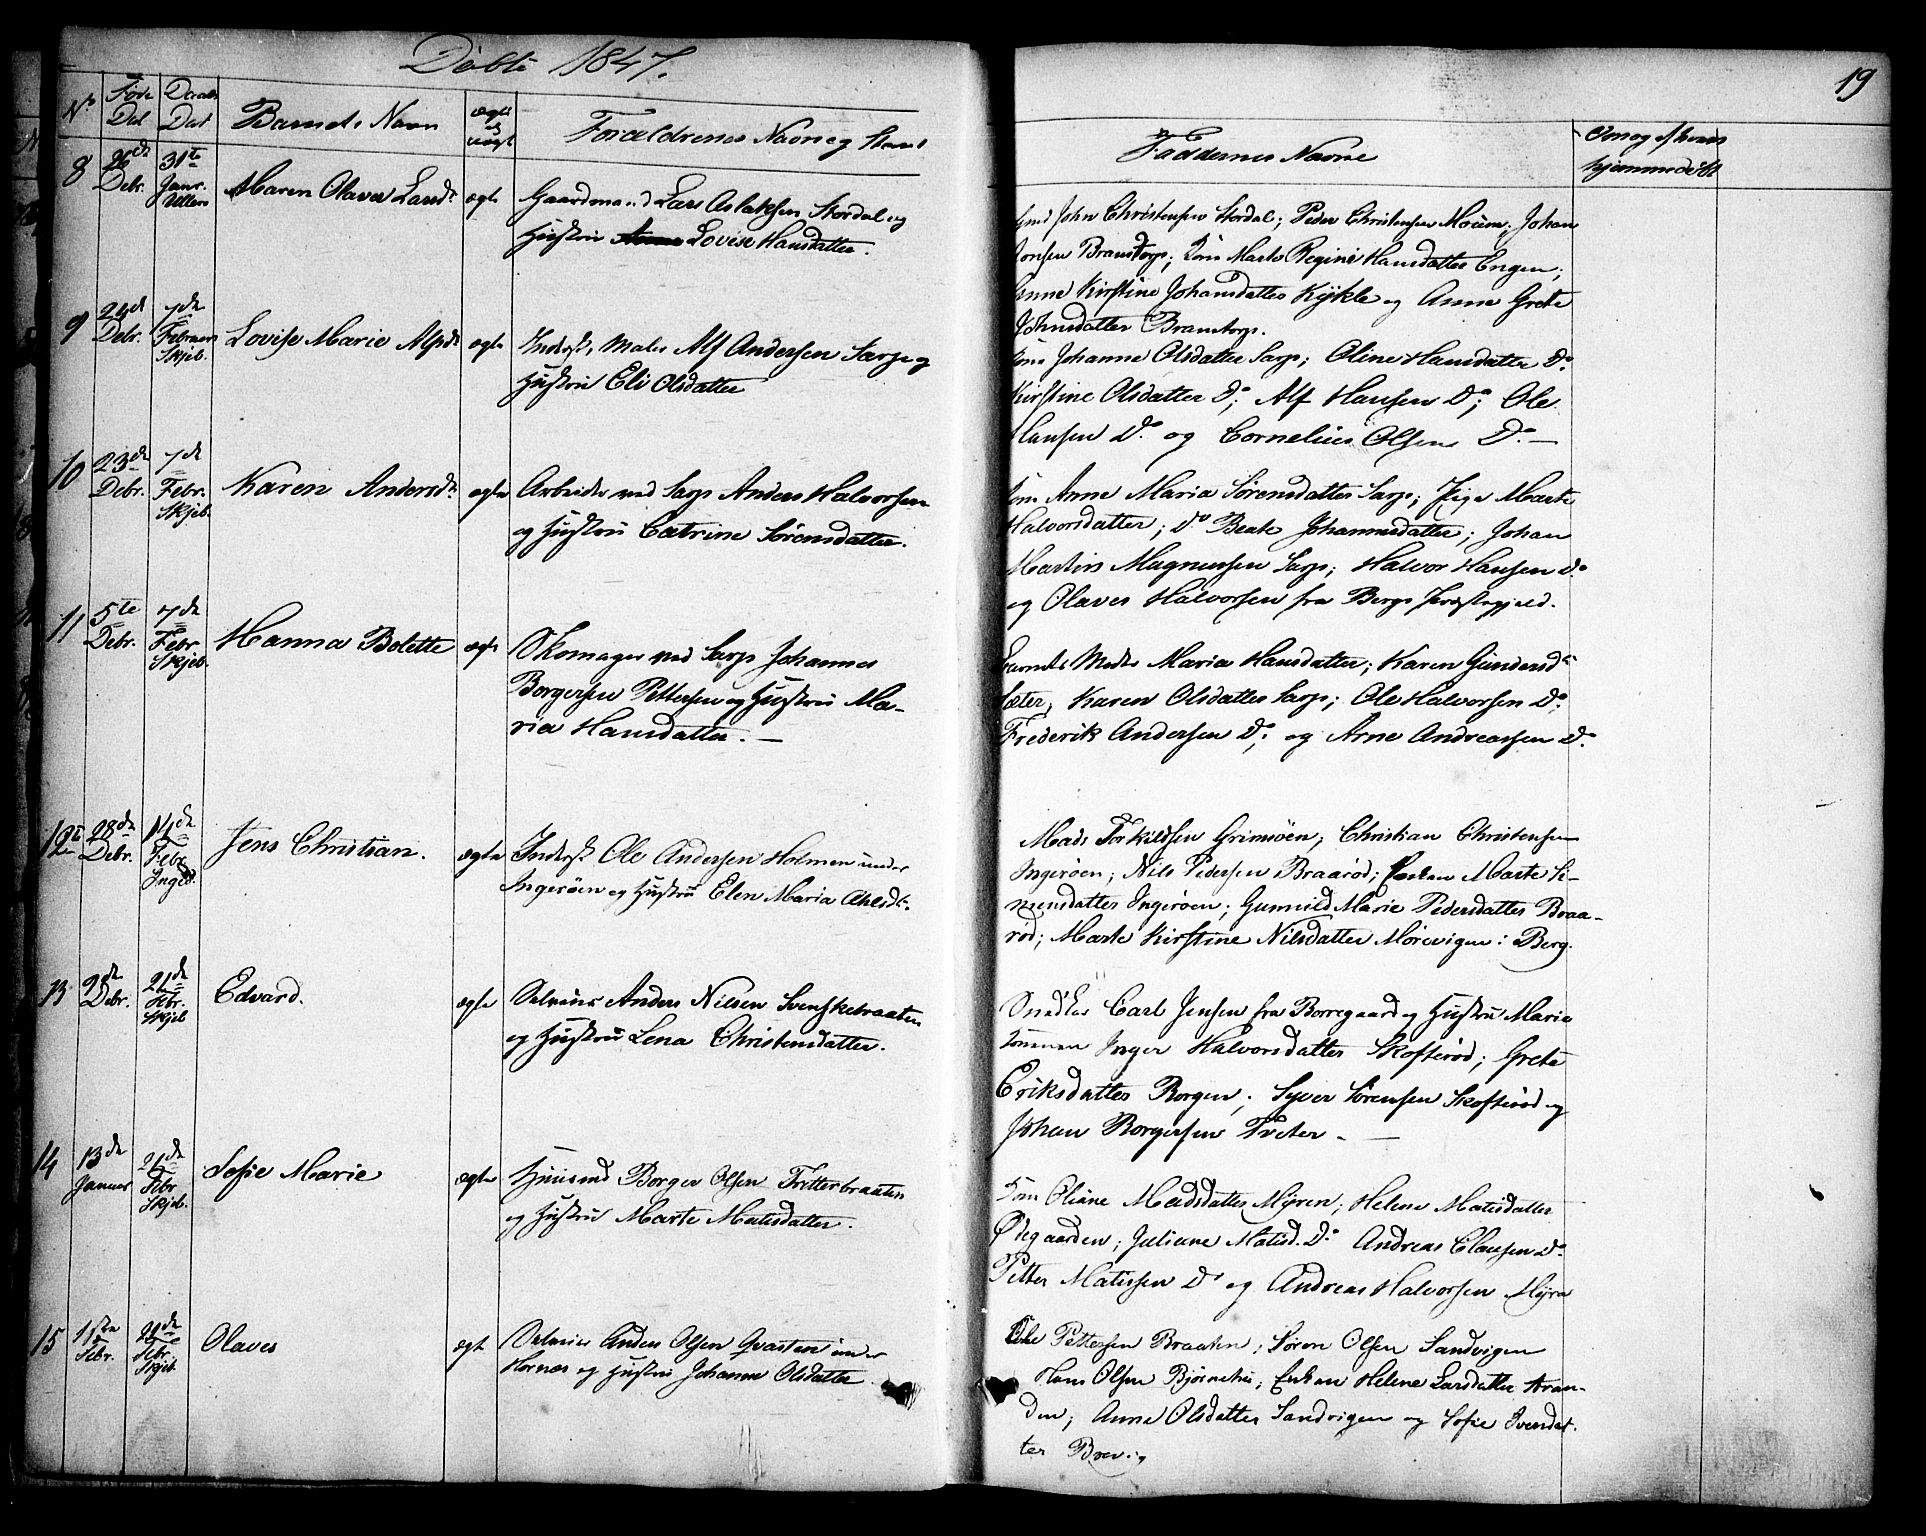 Döbte 1847.
19
No
Føde Dat
Daabs Dat
Barnets Navn
ægte el uægt
Forældrenes Navne og Stand
Faddernes Navne
hjemmedøbt
8
26de Debr.
31te Janr. Ullerø
Maren Olava Larsdr
ægte
Gaardmand Lars Aslaksen Stordal og
Hustru Lovise Hansdatter.
Gmd John Christensen Stordal; Peder Christensen Moum; Johan
Jonsen Bramstorp; Kone Marte Regine Hansdatter Engen;
Anne Kirstine Johansdatter Kykla og Anne Grete
Johnsdatter Bramstorp.
9
Debr.
7de Februar Skjeb.
Lovise Marie Alfsdr
ægte
Inderst, Maler Alf Andersen Sarp og
Hustru Eli Olsdatter
Kone Johanne Olsdatter Sarp; Oline Hansdatter Do
Kirstine Olsdatter Do; Alf Hansen Do; Ole
Hansen Do og Cornelius Olsen Do. —
10
23de Debr.
7de Febr. Skjeb.
Karen Andersdr
ægte
Arbeider ved Sarp Anders Halvorsen
og Hustru Catrine Sørensdatter.
Kone Anne Maria Sørensdatter Sarp; Pige Marte
Halvorsdatter; Do Beate Johannesdatter; Johan
Martin Magnussen Sarp; Halvor Hansen Do
og Olaves Halvorsen fra Bergs Præstegjeld.
11
5te Debr.
7de Febr. Skjeb.
Hanna Bolette
ægte
Skomager ved Sarp Johannes
Borgersen Pettersen og Hustru Ma-
ria Hansdatter. —
Barnets Moder Maria Hansdatter; Karen Gundersdr
Sæter, Karen Olsdatter Sarp; Ole Halvorsen Do;
Frederik Andersen Do; og Arne Andreassen Do.
12
28de Debr.
14de Febr. Inged.
Jens Christian.
ægte
Inderst Ole Andersen Holmen under
Ingerøen og Hustru Elen Maria
Mads Torkildsen Grimsøen; Christian Christensen
Ingerøen; Nils Pedersen Braarød; Enken Marte Si-
mensdatter Ingerøen; Gunnild Marie Pedersdatter Braa-
rød; Marte Kirstine Nilsdatter Mørevigen i Berg.
13
9de Debr.
21de Febr. Skjeb
Edvard.
ægte
Selveier Anders Nilsen Svenskebraaten
og Hustru Lena Christensdatter.
Snedker Carl Jensen fra Borregaard og Hustru Maria
Inger Halvorsdatter Skofterød; Grete
Eriksdatter Borgen; Syver Sørensen Skofterød og
Johan Borgersen Treter —
14
13de Januar
21de Febr Skjeb.
Sofie Marie
ægte
Huusmd Borger Olsen Tretterbraaten
og Hustru Marte Matisdatter.
Kone Oliane Madsdatter Myren; Helene Matisdatter
Ødegaarden; Juliane Matisd. Do Andreas Clausen Do.
Petter Matissen Do og Andreas Halvorsen Myra
15
11te Febr.
21de Febr. Skjeb.
Olaves
ægt
Selveier Anders Olsen Qvastein under
Hornæs og Hustru Johanne Olsdatter
Ole Pettersen Braaten; Søren Olsen Sandvigen
Hans Olsen Bjørnehu; Enken Helene Larsdatter Stran-
den; Anne Olsdatter Sandvigen og Sofie Ivensdat-
ter Brevig